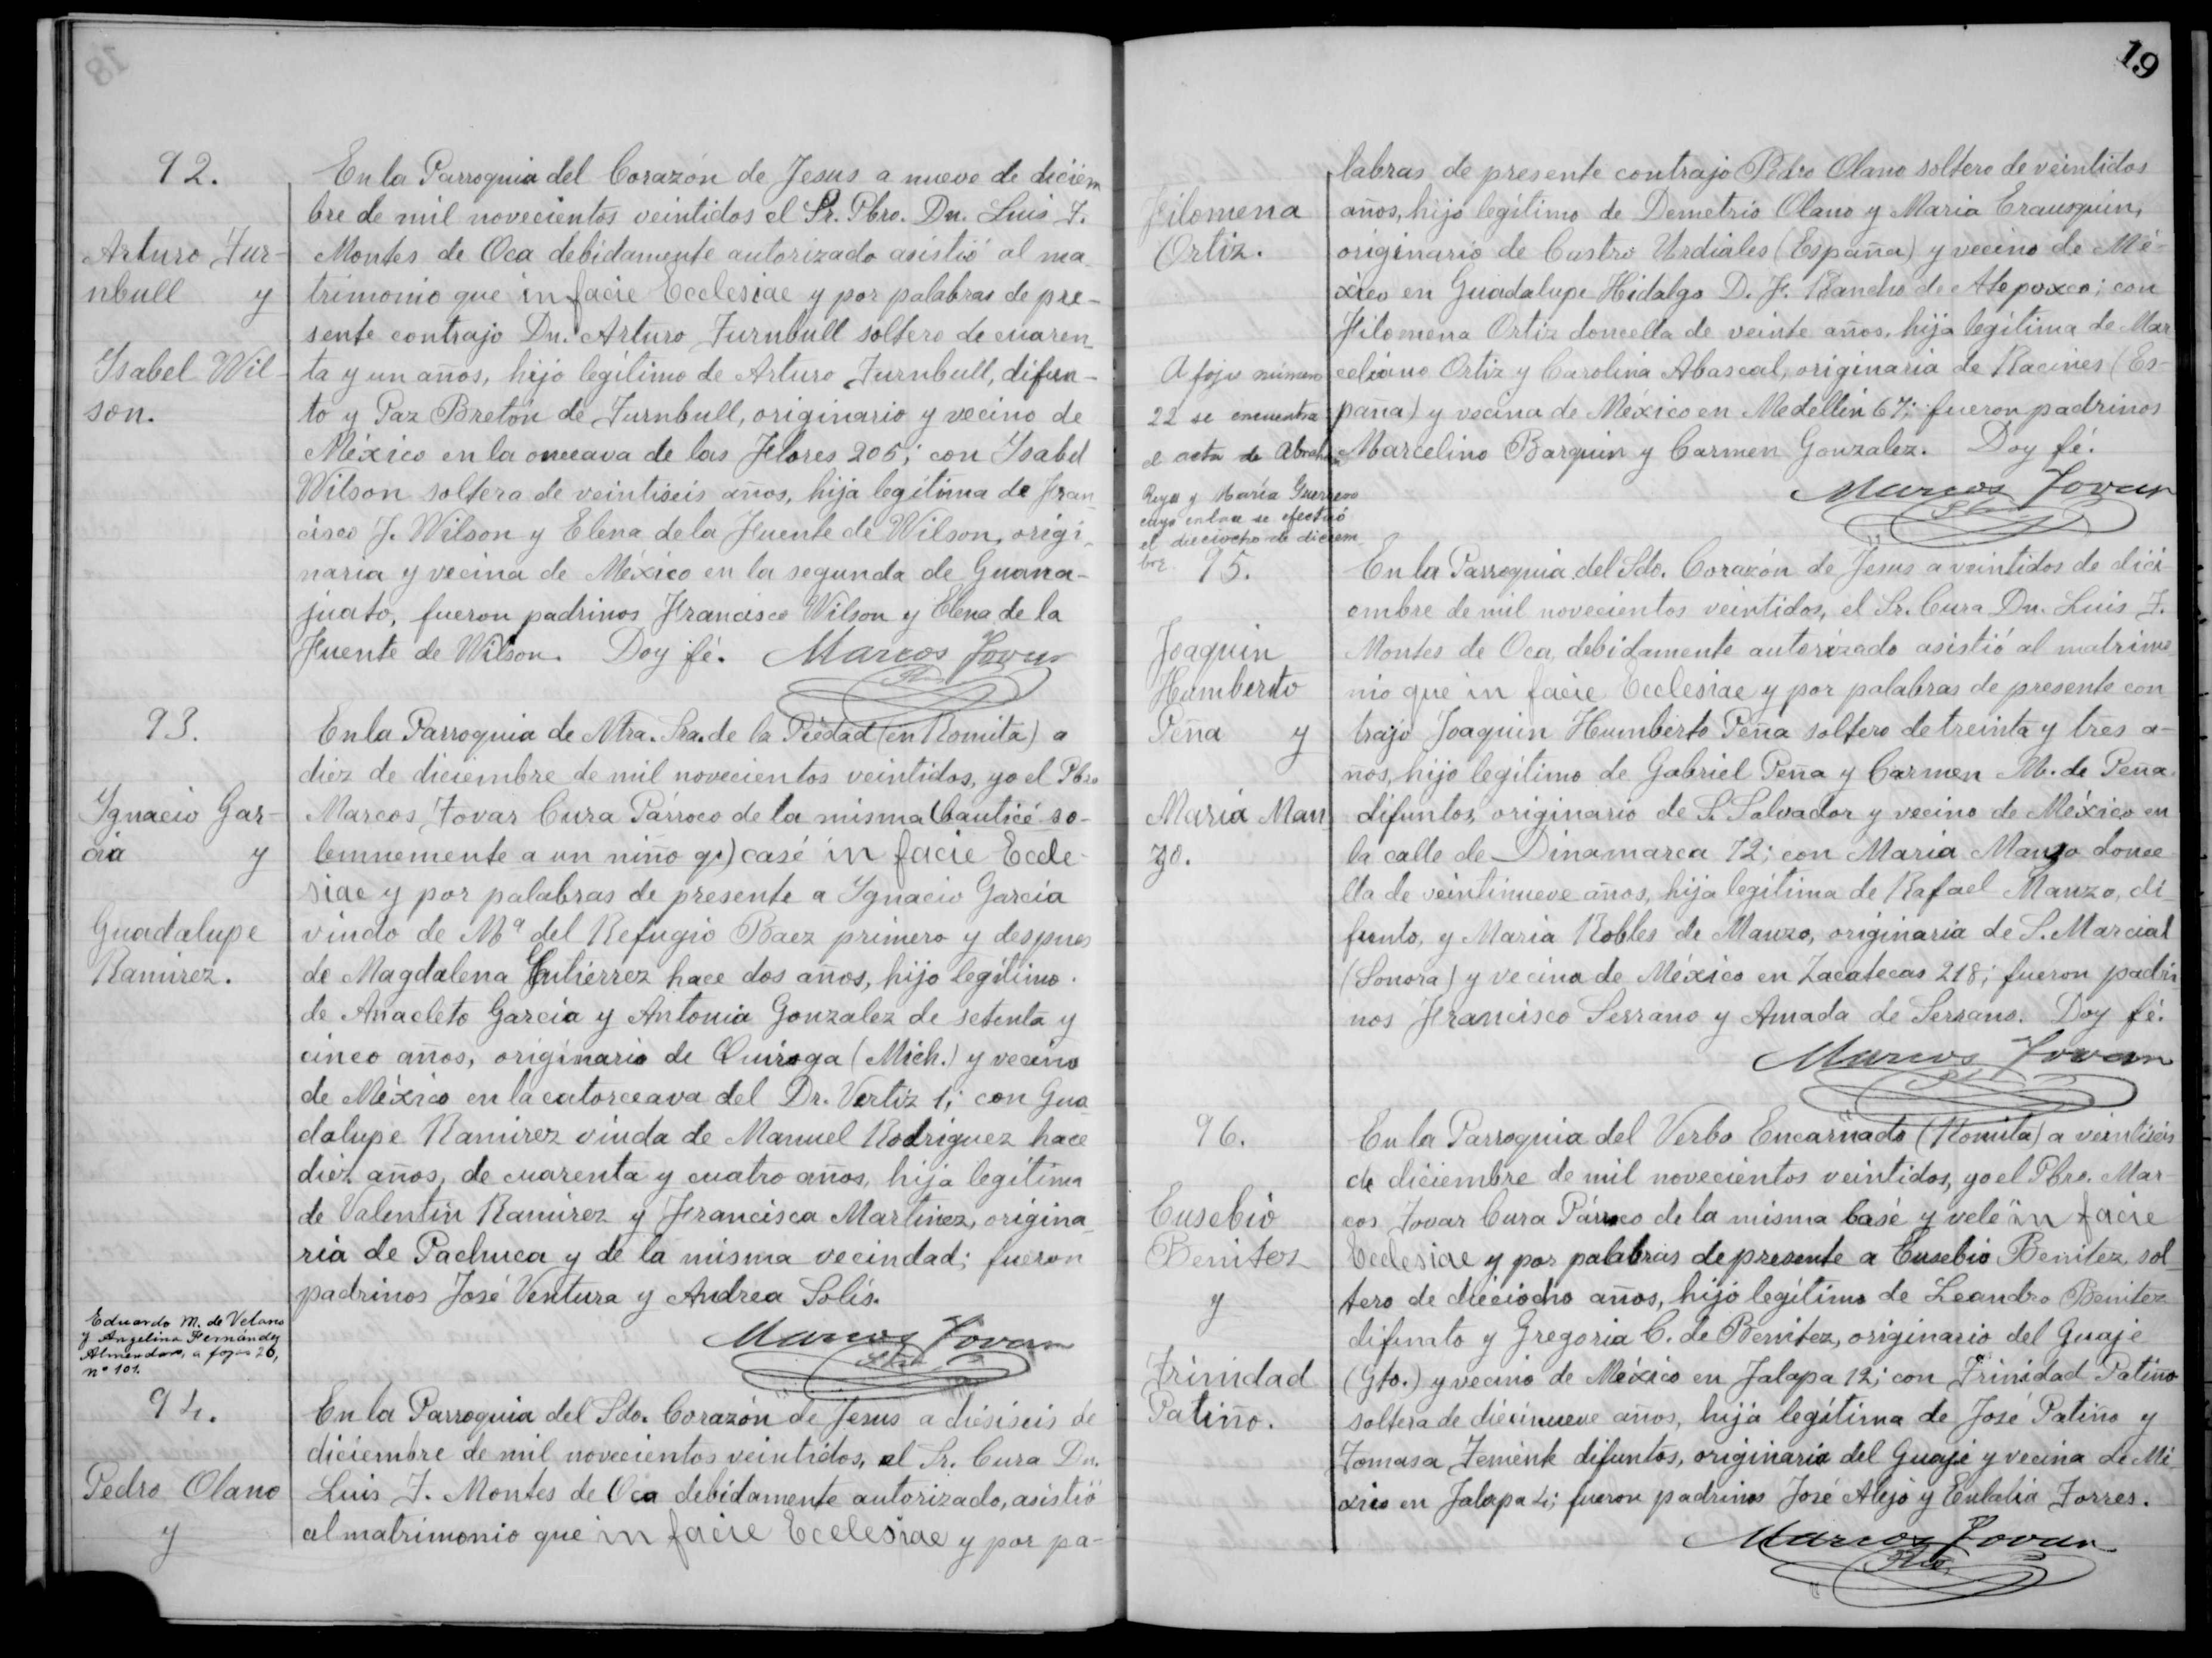 18
92.
Arturo Tur-
nbull y
Isabel Wil-
son.
En la Parroquia del Corazón de Jesus a nueve de diciem
bre de mil novecientos veintidos el Sr. Pbro. Dn. Luis T.
Montes de Oca debidamente autorizado asistió al ma-
trimonio que in facie Ecclesiae y por palabras de pre-
sente contrajo Dn. Arturo Turnbull soltero de cuaren-
ta y un años, hijo legítimo de Arturo Turnbull, difun-
to y Paz Bretón de Turnbull, originario y vecino de
México en la onceava de las Flores 205; con Ysabel
Wilson soltera de veintiseis años, hija legítima de Fran-
cisco J. Wilson y Elena de la Fuente de Wilson, origi-
naria y vecina de México en la segunda de Guana-
juato, fueron padrinos Francisco Wilson y Elena de la
Fuente de Wilson. Doy fé. Marcos Tovar
Pbro.
93.
Ygnacio Gar-
cia y
Guadalupe
Ramirez.
En la Parroquia de Ntra. Sra. de la Piedad (en Romita) a
diez de diciembre de mil novecientos veintidos, yo el Pbro
Marcos Tovar Cura Párroco de la misma (bauticé so-
lemnemente a un niño qe) casé in facie Eccle-
siae y por palabras de presente a Ygnacio García
viudo de Ma del Refugio Baez primero y despues
de Magdalena Gutiérrez hace dos años, hijo legítimo
de Anacleto García y Antonia Gonzalez de setenta y
cinco años, originario de Quiroga (Mich.) y vecino
de México en la catorceava del Dr. Vertiz 1; con Gua
dalupe Ramirez viuda de Manuel Rodriguez hace
diez años, de cuarenta y cuatro años, hija legítima
de Valentín Ramirez y Francisca Martinez, origina
ria de Pachuca y de la misma vecindad; fueron
padrinos José Ventura y Andrea Solís.
Marcos Tovar
Pbro.
Eduardo M. de Velano
y Angelina Fernández
Almendaro, a fojas 26,
nº 101.
94.
Pedro Olano
y
En la Parroquia del Sdo. Corazón de Jesus a diésiseis de
diciembre de mil novecientos veintidos, el Sr. Cura Dn.
Luis T. Montes de Oca debidamente autorizado, asistió
al matrimonio que in facie Ecclesiae y por pa-
19
Filomena
Ortiz.
labras de presente contrajo Pedro Olano soltero de veintidos
años, hijo legítimo de Demetrio Olano y Maria Erausquin,
originario de Castro Urdiales (España) y vecino de Mé-
xico en Guadalupe Hidalgo D. F. Rancho de Atepoxco; con
Filomena Ortiz doncella de veinte años, hija legítima de Mar
celiano Ortiz y Carolina Abascal, originaria de Racines (Es-
paña) y vecina de México en Medellin 67; fueron padrinos
Marcelino Barquin y Carmen Gonzalez. Doy fé.
Marcos Tovar
Pbro.
A foja número
22 se encuentra
el acta de Abraham
Reyes y María Guerrero
cuyo enlace se efectuó
el dieciocho de diciem
bre.
95.
Joaquin
Humberto
Peña y
María Man
zo.
En la Parroquia del Sdo. Corazón de Jesus a veintidos de dici
embre de mil novecientos veintidos, el Sr. Cura Dn. Luis T.
Montes de Oca, debidamente autorizado asistió al matrimo
nio que in facie Ecclesiae y por palabras de presente con
trajo Joaquin Humberto Peña soltero de treinta y tres a-
ños, hijo legítimo de Gabriel Peña y Carmen M. de Peña
difuntos, originario de S. Salvador y vecino de México en
la calle de Dinamarca 72; con Maria Manzo donce
lla de veintinueve años, hija legítima de Rafael Manzo, di
funto, y Maria Robles de Manzo, originaria de S. Marcial
(Sonora) y vecina de México en Zacatecas 218; fueron padri
nos Francisco Serrano y Amada de Serrano. Doy fé.
Marcos Tovar
Pbro.
96.
Eusebio
Benitez
y
Trinidad
Patiño.
En la Parroquia del Verbo Encarnado (Romita) a veintiseis
de diciembre de mil novecientos veintidos, yo el Pbro. Mar-
cos Tovar Cura Párroco de la misma casé y velé in facie
Ecclesiae y por palabras de presente a Eusebio Benitez, sol
tero de dieciocho años, hijo legítimo de Leandro Benitez
difunto y Gregoria C. de Benitez, originario del Guaje
(Gto.) y vecino de México en Jalapa 12; con Trinidad Patiño
soltera de diecinueve años, hija legítima de José Patiño y
Tomasa difuntos, originaria del Guaje y vecina de Mé
xico en Jalapa 4; fueron padrinos José Alejo y Eulalia Torres.
Marcos Tovar
Pbro.